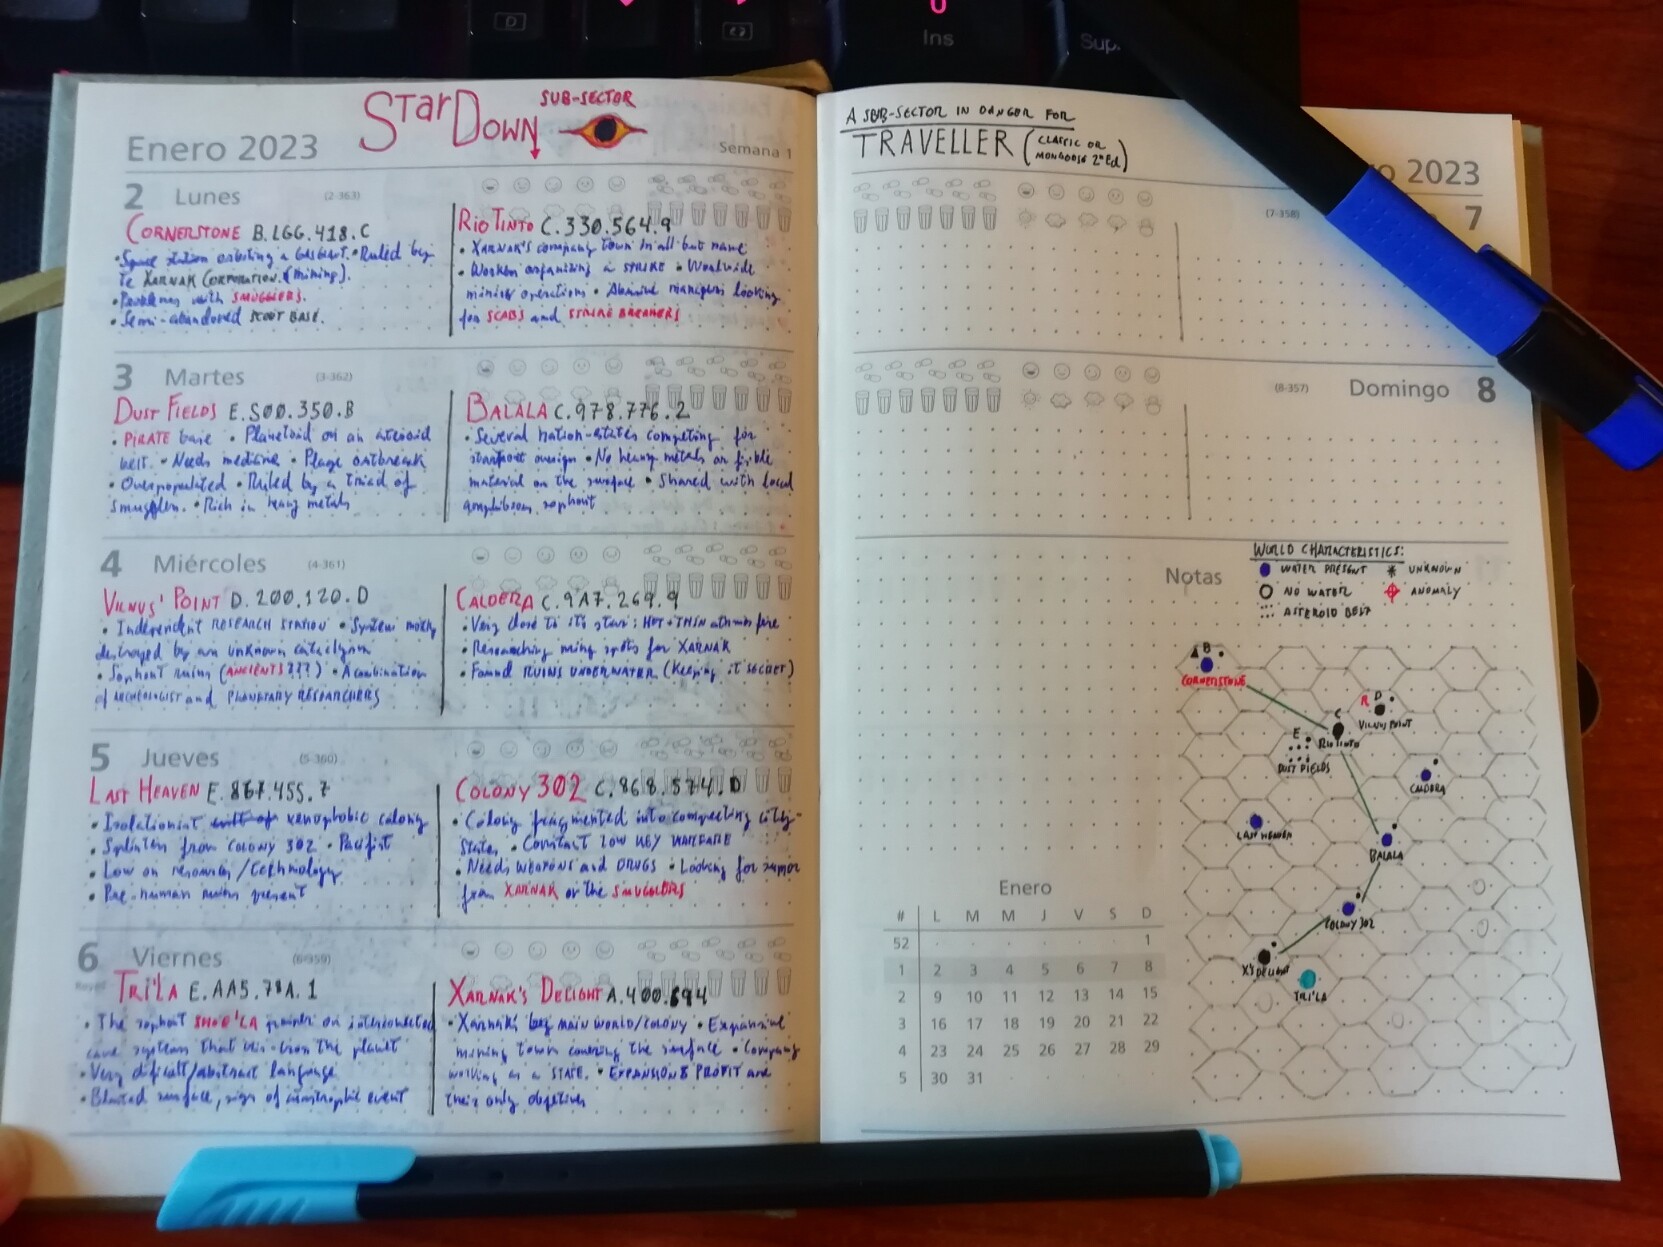 Ins
Sup
StarDown SUB-SECTOR
Enero 2023
Semana 1
2 Lunes (2-363)
CORNERSTONE B.LGG.418.C
• Space station orbiting a GASGIANT. • Ruled by
te XARNAK CORPORATION. (mining).
• Problems with SMUGGLERS.
• Semi-abandoned SCOUT BASE.
RIO TINTO C.330.564.9
• XARNAK'S company town in all but name
• Workers organizing a STRIKE • Worldwide
mining operations • Abusive managers looking
for SCABS and STRIKE BREAKERS
3 Martes (3-362)
DUST FIELDS E.S00.350.B
• PIRATE base • Planetoid on an asteroid
belt. • Needs medicine • Plage outbreak
• Overpopulated • Ruled by a triad of
smugglers. • Rich in heavy metals
BALALA C.978.776.2
• Several nation-states competing for
starport • No heavy metals or fisible
material on the surface • Shared with local
sophont
4 Miércoles (4-361)
VILNUS' POINT D.200.120.D
• Independent RESEARCH STATION • System mostly
destroyed by an unknown cataclysm
• Sophont ruins (ANCIENTS???) • A combination
of ARCHEOLOGIST and PLANETARY RESEARCHERS
CALDERA C.9A7.269.9
• Very close to its star: HOT + THIN
• Researching ming spots for XARNAK
• Found RUINS UNDERWATER (Keeping it secret)
5 Jueves (5-360)
LAST HEAVEN E.867.455.7
• Isolationist xenophobic colony
• Splinter from COLONY 302 • Pacifist
• Low on resources/technology
• Pre-human ruins present
COLONY 302 C.868.574.D
• Colony fragmented into competing city-
states • Constant LOW KEY WARFARE
• Needs WEAPONS and DRUGS • Looking for
from XARNAK or the SMUGGLERS
6 Viernes (6-359)
Reyes
TRI'LA E.AA5.78A.1
• The sophont SHOO'LA on interconected
cave systems that the planet
• Very dificult/abstract language
• Blasted surface, sign of catastrophic event
XARNAK'S DELIGHT A.400.694
• Xarnak's big MAIN WORLD/COLONY • Expansive
mining town covering the surface • Company
working as a STATE. • EXPANSION & PROFIT are
their only objetives
A SUB-SECTOR IN DANGER FOR
TRAVELLER (CLASSIC OR MONGOOSE 2ª Ed)
o 2023
(7-358) 7
(8-357) Domingo 8
Notas
WORLD CHARACTERISTICS:
WATER PRESENT * UNKNOWN
NO WATER ANOMALY
ASTEROID BELT
B
CORNERSTONE
R D
VILNUS POINT
C
RIO TINTO
E
DUST FIELDS
CALDERA
LAST HEAVEN
BALALA
COLONY 302
X'S DELIGHT
TRI'LA
Enero
# L M M J V S D
52 . . . . . . 1
1 2 3 4 5 6 7 8
2 9 10 11 12 13 14 15
3 16 17 18 19 20 21 22
4 23 24 25 26 27 28 29
5 30 31